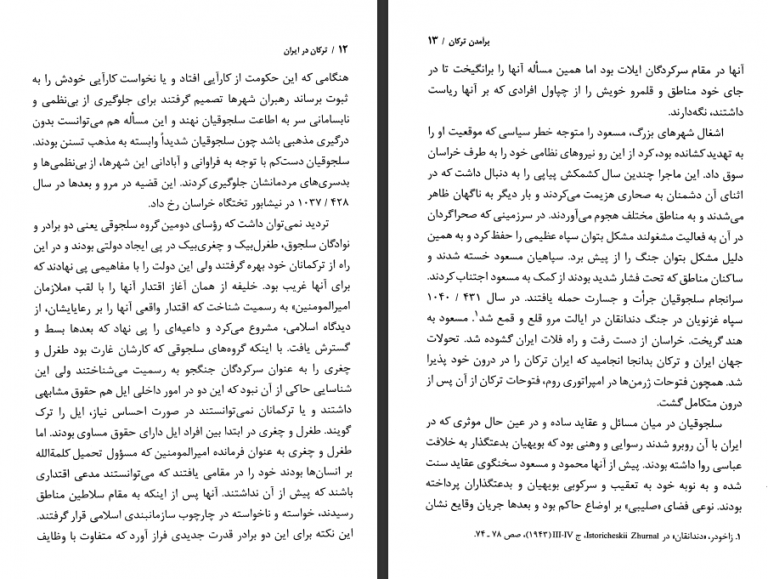 ۱۲ / ترکان در ایران
هنگامی که این حکومت از کارآیی افتاد و یا نخواست کارآیی خودش را به
ثبوت برساند رهبران شهرها تصمیم گرفتند برای جلوگیری از بی‌نظمی و
نابسامانی سر به اطاعت سلجوقیان نهند و این مسأله هم می‌توانست بدون
درگیری مذهبی باشد چون سلجوقیان شدیداً وابسته به مذهب تسنن بودند.
سلجوقیان دست‌کم با توجه به فراوانی و آبادانی این شهرها، از بی‌نظمی‌ها و
بدسری‌های مردمانشان جلوگیری کردند. این قضیه در مرو و بعدها در سال
۴۲۸ / ۱۰۳۷ در نیشابور تختگاه خراسان رخ داد.
تردید نمی‌توان داشت که رؤسای دومین گروه سلجوقی یعنی دو برادر و
نوادگان سلجوق، طغرل‌بیک و چغری‌بیک در پی ایجاد دولتی بودند و در این
راه از ترکمانان خود بهره گرفتند ولی این دولت را با مفاهیمی پی نهادند که
برای آنها غریب بود. خلیفه از همان آغاز اقتدار آنها را با لقب «ملازمان
امیرالمومنین» به رسمیت شناخت که اقتدار واقعی آنها را بر رعایایشان، از
دیدگاه اسلامی، مشروع می‌کرد و داعیه‌ای را پی نهاد که بعدها بسط و
گسترش یافت. با اینکه گروه‌های سلجوقی که کارشان غارت بود طغرل و
چغری را به عنوان سرکردگان جنگجو به رسمیت می‌شناختند ولی این
شناسایی حاکی از آن نبود که این دو در امور داخلی ایل هم حقوق مشابهی
داشتند و یا ترکمانان نمی‌توانستند در صورت احساس نیاز، ایل را ترک
گویند. طغرل و چغری در ابتدا بین افراد ایل دارای حقوق مساوی بودند. اما
طغرل و چغری به عنوان فرمانده امیرالمومنین که مسؤول تحمیل کلمةالله
بر انسان‌ها بودند خود را در مقامی یافتند که می‌توانستند مدعی اقتداری
باشند که پیش از آن نداشتند. آنها پس از اینکه به مقام سلاطین مناطق
رسیدند، خواسته و ناخواسته در چارچوب سازمانبندی اسلامی قرار گرفتند.
این نکته برای این دو برادر قدرت جدیدی فراز آورد که متفاوت با وظایف
برآمدن ترکان / ۱۳
آنها در مقام سرکردگان ایلات بود اما همین مسأله آنها را برانگیخت تا در
جای خود مناطق و قلمرو خویش را از چپاول افرادی که بر آنها ریاست
داشتند، نگه‌دارند.
اشغال شهرهای بزرگ، مسعود را متوجه خطر سیاسی که موقعیت او را
به تهدید کشانده بود، کرد. از این رو نیروهای نظامی خود را به طرف خراسان
سوق داد. این ماجرا چندین سال کشمکش پیاپی را به دنبال داشت که در
اثنای آن دشمنان به صحاری هزیمت می‌کردند و بار دیگر به ناگهان ظاهر
می‌شدند و به مناطق مختلف هجوم می‌آوردند. در سرزمینی که صحراگردان
در آن به فعالیت مشغولند مشکل بتوان سپاه عظیمی را حفظ کرد و به همین
دلیل مشکل بتوان جنگ را از پیش برد. سپاهیان مسعود خسته شدند و
ساکنان مناطق که تحت فشار شدید بودند از کمک به مسعود اجتناب کردند.
سرانجام سلجوقیان جرأت و جسارت حمله یافتند. در سال ۴۳۱ / ۱۰۴۰
سپاه غزنویان در جنگ دندانقان در ایالت مرو قلع و قمع شد¹. مسعود به
هند گریخت. خراسان از دست رفت و راه فلات ایران گشوده شد. تحولات
جهان ایران و ترکان بدانجا انجامید که ایران ترکان را در درون خود پذیرا
شد. همچون فتوحات ژرمن‌ها در امپراتوری روم، فتوحات ترکان از آن پس از
درون متکامل گشت.
سلجوقیان در میان مسائل و عقاید ساده و در عین حال موثری که در
ایران با آن روبرو شدند رسوایی و وهنی بود که بویهیان بدعتگذار به خلافت
عباسی روا داشته بودند. پیش از آنها محمود و مسعود سخنگوی عقاید سنت
شده و به نوبه خود به تعقیب و سرکوبی بویهیان و بدعتگذاران پرداخته
بودند. نوعی فضای «صلیبی» بر اوضاع حاکم بود و بعدها جریان وقایع نشان
۱. زاخودر، «دندانقان» در Istoricheskii Zhurnal، ج III-IV (۱۹۴۳)، صص ۷۸ ـ ۷۴.